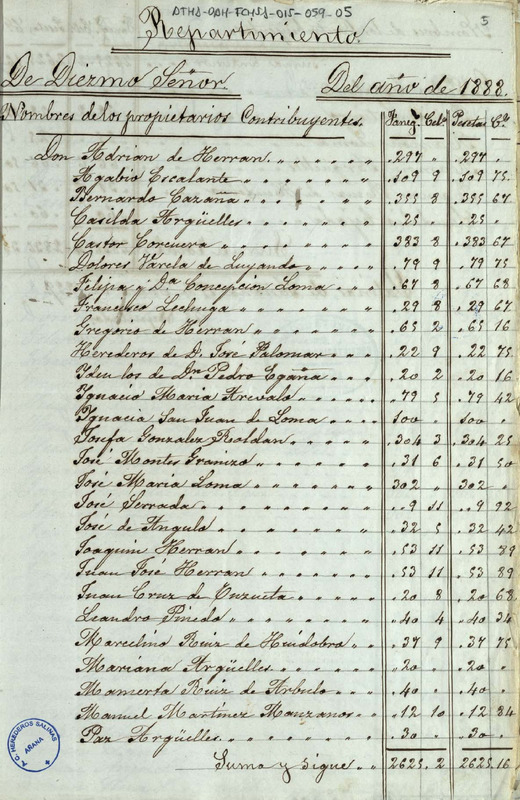 ATHA-DAH-FCHSA-015-059-05
5
Repartimiento
De Diezmo Señor. Del año de 1888.
Nombres de los propietarios Contribuyentes. Faneg.s Cel.s Pesetas C.s
Don Adrian de Herran. 297 " 297 "
Agabio Escalante 109 9 109 75
Bernardo Cazaña 355 8 355 67
Casilda Argüelles 25 " 25 "
Castor Corcuera 383 8 383 67
Dolores Varela de Luyando 79 9 79 75
Felipa y Dª Concepcion Loma 67 8 67 68
Francisco Lechuga 29 8 29 67
Gregorio de Herran 65 2 65 16
Herederos de D. José Palomar 22 9 22 75
Idem los de Dn Pedro Egaña 20 2 20 16
Ygnacio Maria Arevalo 79 5 79 42
Ygnacio San Juan de Loma 100 " 100 "
Josefa Gonzalez Roldan 304 3 304 25
José Montes Granizo 31 6 31 50
José Maria Loma 302 " 302 "
José Serrada 9 11 9 92
José de Angulo 32 5 32 42
Joaquin Herran 53 11 53 89
Juan José Herran 53 11 53 89
Juan Cruz de Unzueta 20 8 20 68
Leandro Pinedo 40 4 40 34
Marcelino Ruiz de Huidobro 37 9 37 75
Mariana Argüelles 20 " 20 "
Mamerta Ruiz de Arbulo 40 " 40 "
Manuel Martinez Manzanos 12 10 12 84
Paz Argüelles 30 " 30 "
Suma y sigue 2625 2 2625 16
C. HEREDEROS SALINAS
AÑANA